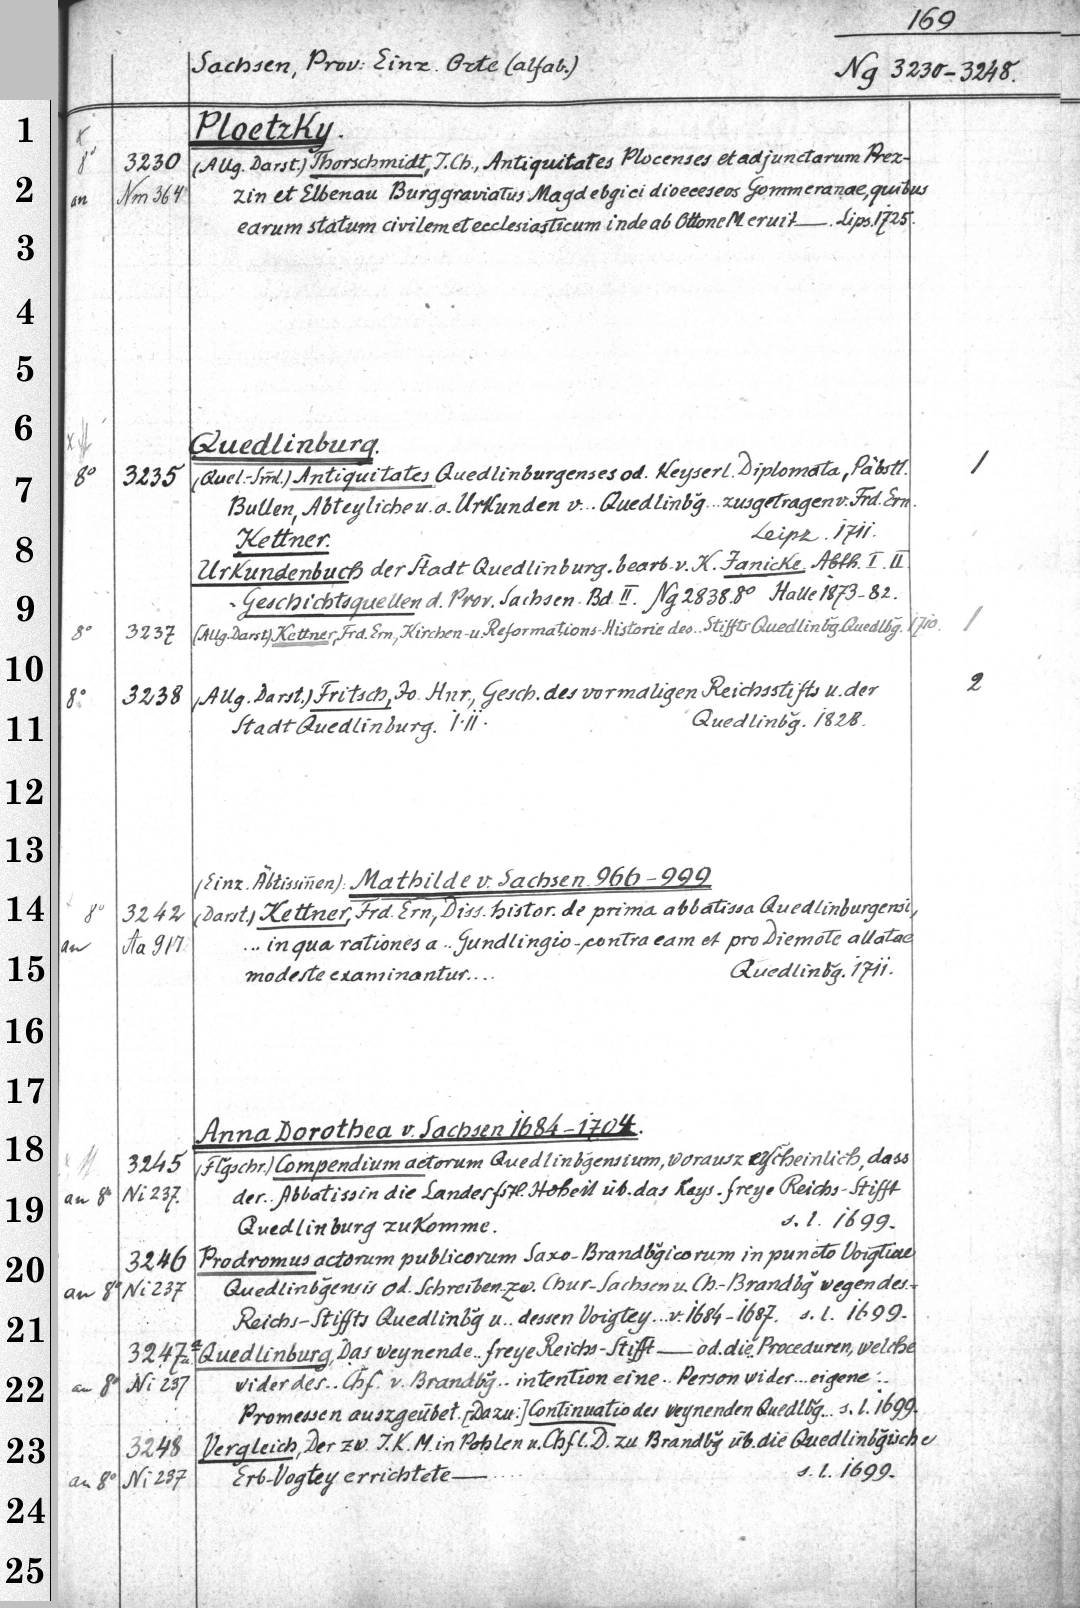 169
Sachsen, Prov: Einz. Orte (alfab.)
Ng 3230-3248.
1
Ploetzky.
8° 3230 (Allg. Darst.) Thorschmidt, J. Ch., Antiquitates Plocenses et adjunctarum Prez-
2
an Nm 364 zin et Elbenau Burggraviatus Magdebgici dioeceseos Gommeranae, quibus
earum statum civilem et ecclesiasticum inde ab Ottone M. eruit—. Lips. 1725.
3
4
5
6
Quedlinburg.
8° 3235 (Quel.-Sml.) Antiquitates Quedlinburgenses od. Keyserl. Diplomata, Päbstl. 1
7
Bullen, Abteyliche u. a. Urkunden v... Quedlinbg... zusgetragen v. Frd. Ern.
Kettner. Leipz. 1711.
8
Urkundenbuch der Stadt Quedlinburg. bearb. v. K. Janicke. Abth. I. II
- Geschichtsquellen d. Prov. Sachsen. Bd II. Ng 2838.8° Halle 1873-82.
9
8° 3237 (Allg. Darst.) Kettner, Frd. Ern, Kirchen- u. Reformations-Historie des.. Stiffts Quedlinbg. Quedlbg. 1710. 1
10
8° 3238 (Allg. Darst.) Fritsch, Jo. Hnr., Gesch. des vormaligen Reichsstifts u. der 2
11
Stadt Quedlinburg. I. II. Quedlinbg. 1828.
12
13
(Einz. Äbtissinen). Mathilde v. Sachsen 966-999
14
8° 3242 (Darst.) Kettner, Frd. Ern, Diss. histor. de prima abbatissa Quedlinburgensi,
an Aa 917 ... in qua rationes a .. Gundlingio contra eam et pro Diemote allatae
15
modeste examinantur.... Quedlinbg. 1711.
16
17
Anna Dorothea v. Sachsen 1684-1704.
18
3245 (Flgschr.) Compendium actorum Quedlinbgensium, vorausz erscheinlich, dass
19
an 8° Ni 237. der.. Abbatissin die Landesfstl. Hoheit üb. das Kays. freye Reichs-Stifft
Quedlinburg zu komme. s. l. 1699.
20
3246 Prodromus actorum publicorum Saxo-Brandbgicorum in puncto Voigtiae
an 8° Ni 237 Quedlinbgensis od. Schreiben zw. Chur-Sachsen u. Ch.-Brandbg wegen des..
21
Reichs-Stiffts Quedlinbg u.. dessen Voigtey... v. 1684-1687. s. l. 1699.
3247 Quedlinburg, Das weynende.. freye Reichs-Stifft— od. die Proceduren, welche
22
an 8° Ni 237 wider des.. Chf. v. Brandbg.. intention eine.. Person wider... eigene..
Promessen auszgeübet. [Dazu:] Continuatio des weynenden Quedlbg... s. l. 1699.
23
3248 Vergleich, Der zw. I. K. M. in Pohlen u. Chfl. D. zu Brandbg üb. die Quedlinbgische
an 8° Ni 237 Erb-Vogtey errichtete— .... s. l. 1699.
24
25